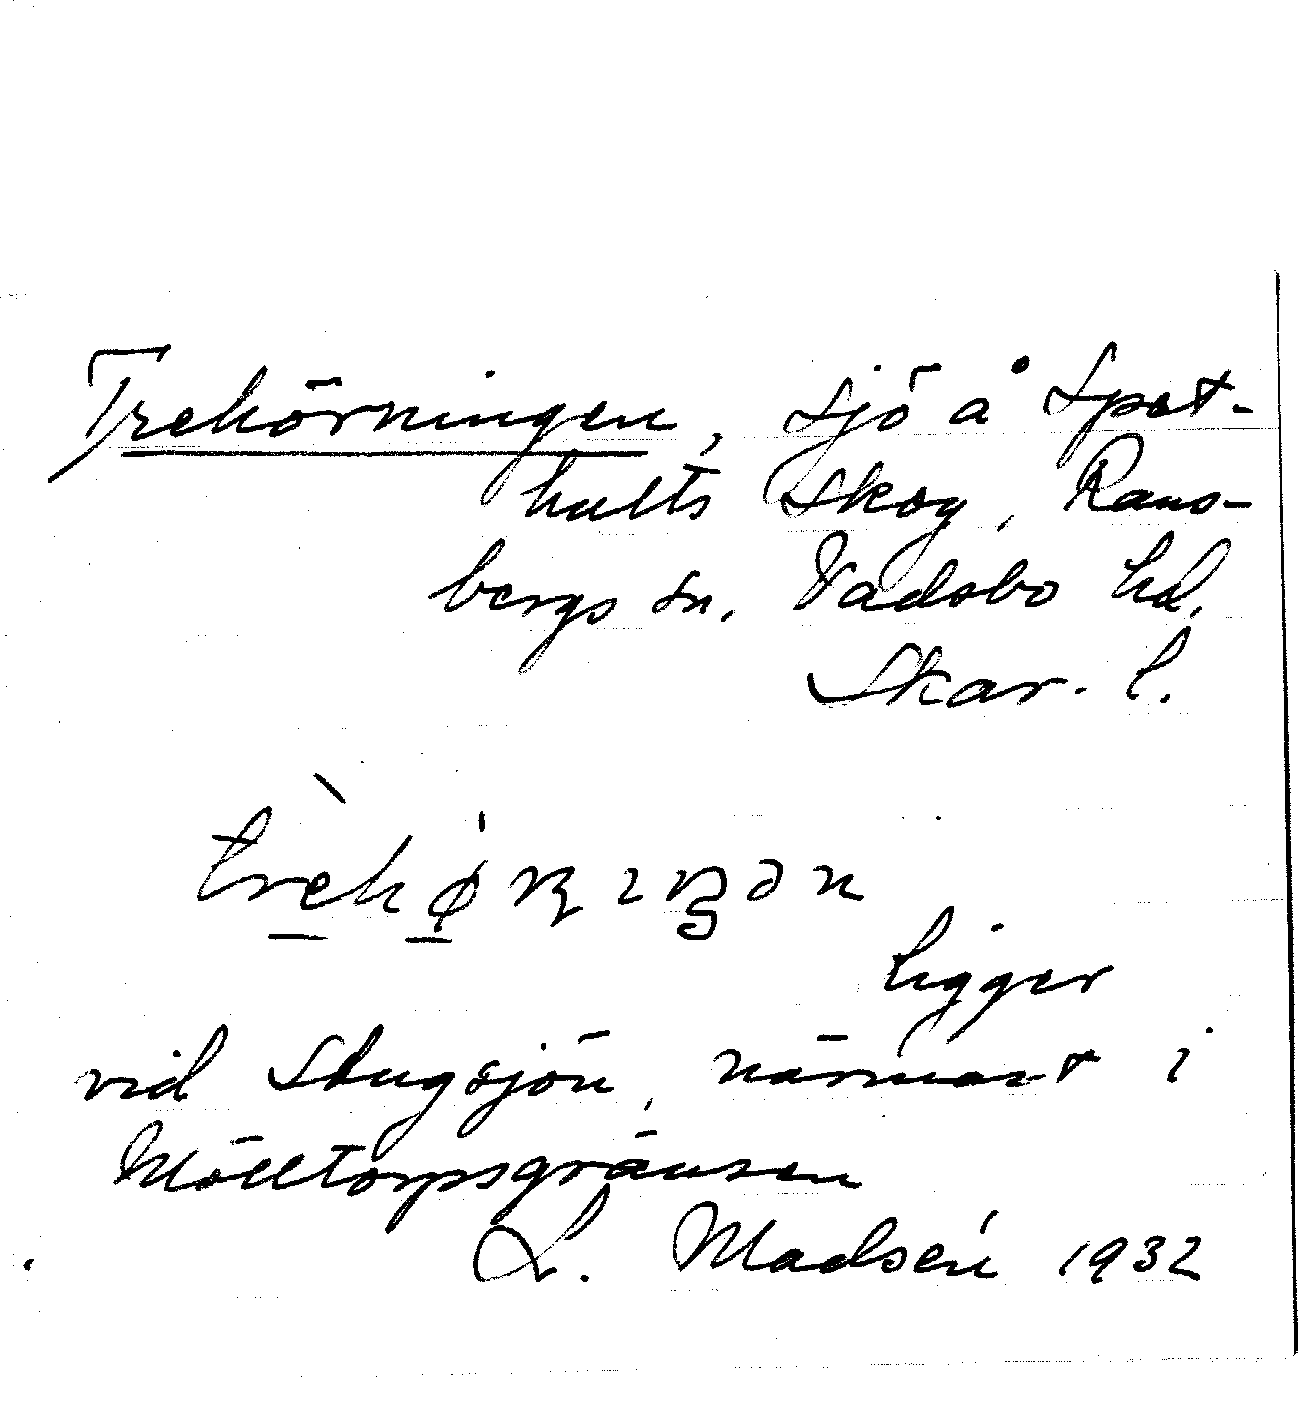 Trehörningen, sjö å Spet-
hults Skog, Rans-
bergs sn. Vadsbo hd.
Skar. l.
ligger
vid Skugsjön, närmast i
Mölltorpsgränsen
L. Madsén 1932